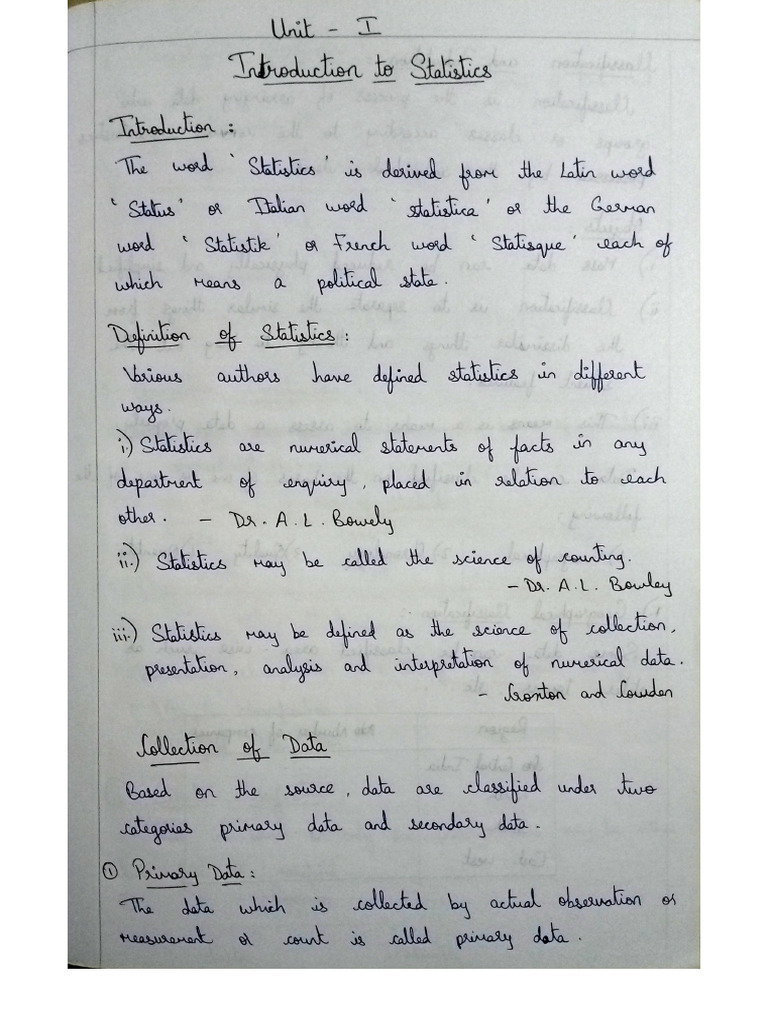 Unit - I
Introduction to Statistics
Introduction :
The word ' Statistics' is derived from the Latin word
' Status' or Italian word ' statistica' or the German
word ' Statistik' or French word ' Statisque' each of
which means a political state.
Definition of Statistics :
Various authors have defined statistics in different
ways.
i.) Statistics are numerical statements of facts in any
department of enquiry, placed in relation to each
other. - Dr. A. L. Bowely
ii.) Statistics may be called the science of counting.
- Dr. A.L. Bowley
iii.) Statistics may be defined as the science of collection,
presentation, analysis and interpretation of numerical data.
- Croxton and Cowden
Collection of Data
Based on the source, data are classified under two
categories primary data and secondary data.
① Primary Data :
The data which is collected by actual observation or
measurement or count is called primary data.